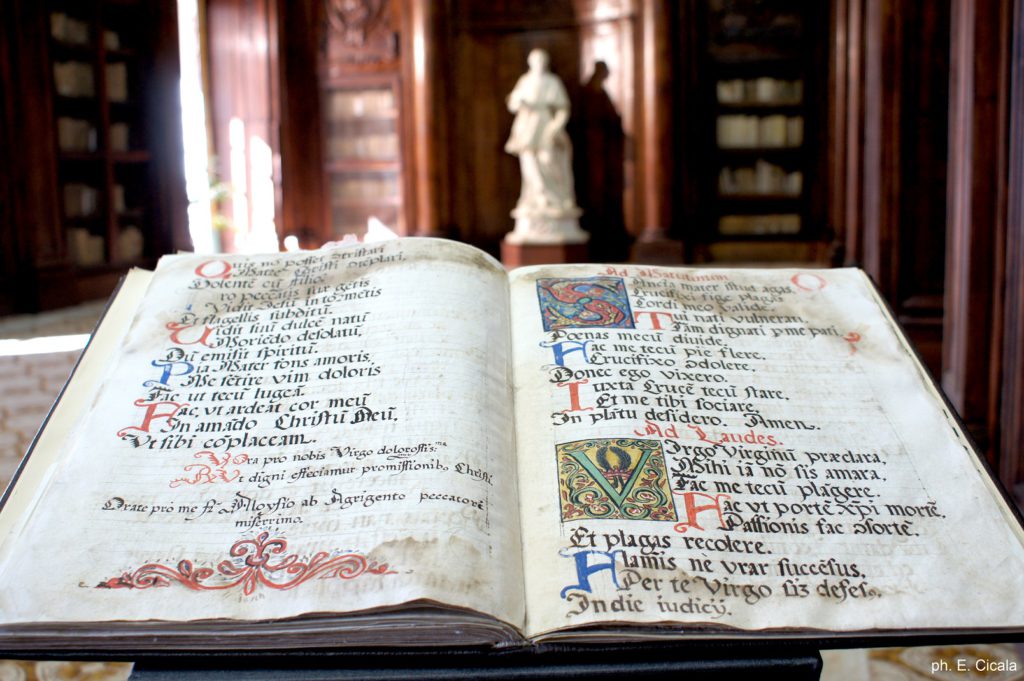 Quis nō posset cōtristari
Matrē Christi cōtēplari,
Dolentē cū filio
Pro peccatis suæ gētis
Vidit Iesū in tormētis
Et flagellis subditū.
Vidit suū dulcē natū
Moriēdo desolatū,
Dū emisit spiritū.
Pia Mater fons amoris,
Me sētire vim doloris
Fac ut tecū lugeā.
Fac, vt ardeāt cor meū
In amādo Christū Deū,
Vt sibi cōplaceam.
Ora pro nobis Virgo dolorosiss:ma
Vt digni efficiamur promissionibꝰ Christi
Orate pro me Fr̄ Aloysio ab Agrigento peccatorē
miserrimo.
Ad Matutinum
Sancta mater istud agas,
Crucifixi fige plagas
Cordi meo valide.
Tui nati vulnerati,
Tam dignati p me pati,
Poenas mecū diuide,
Fac me tecū pie flere,
Crucifixo cōdolere,
Donec ego vixero.
Iuxta Crucē tecū stare,
Et me tibi sociare,
In plātu desidero. Amen.
Ad Laudes.
Virgo Virginū præclara,
Mihi iā nō sis amara,
Fac me tecū plāgere.
Fac vt portē Xpi mortē,
Passionis fac cōsortē,
Et plagas recolere.
Flāmis nē vrar succēsus,
Per tē Virgo sim defēsꝰ,
In die iudicij.
ph. E. Cicala